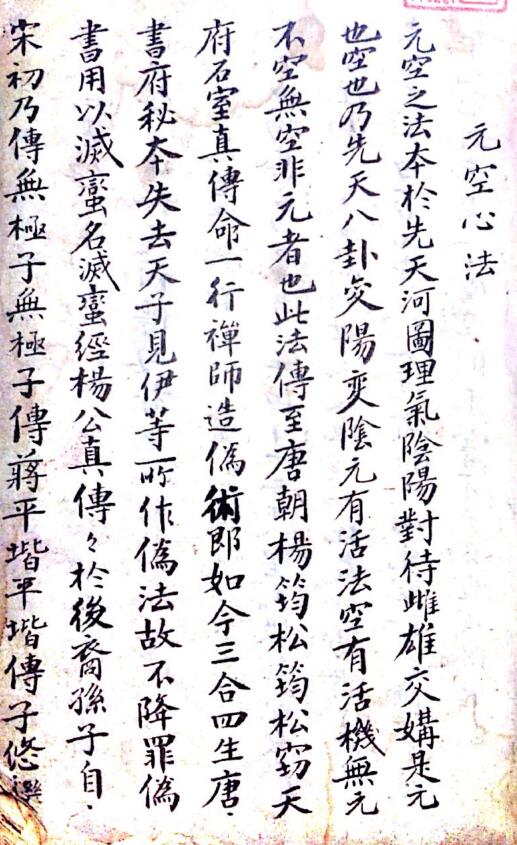 元空心法
元空之法本於先天河圖理氣陰陽對待雌雄交媾是元
也空也乃先天八卦交陽變陰元有活法空有活機無元
不空無空非元者也此法傳至唐朝楊筠松筠松窃天
府石室真傳命一行禪師造偽術即如今三合四生唐、
書府秘本失去天子見伊等所作偽法故不降罪偽
書用以滅蠻名滅蠻經楊公真傳々於後裔孫子自、
宋初乃傳無極子無極子傳蔣平堦平堦傳子悠